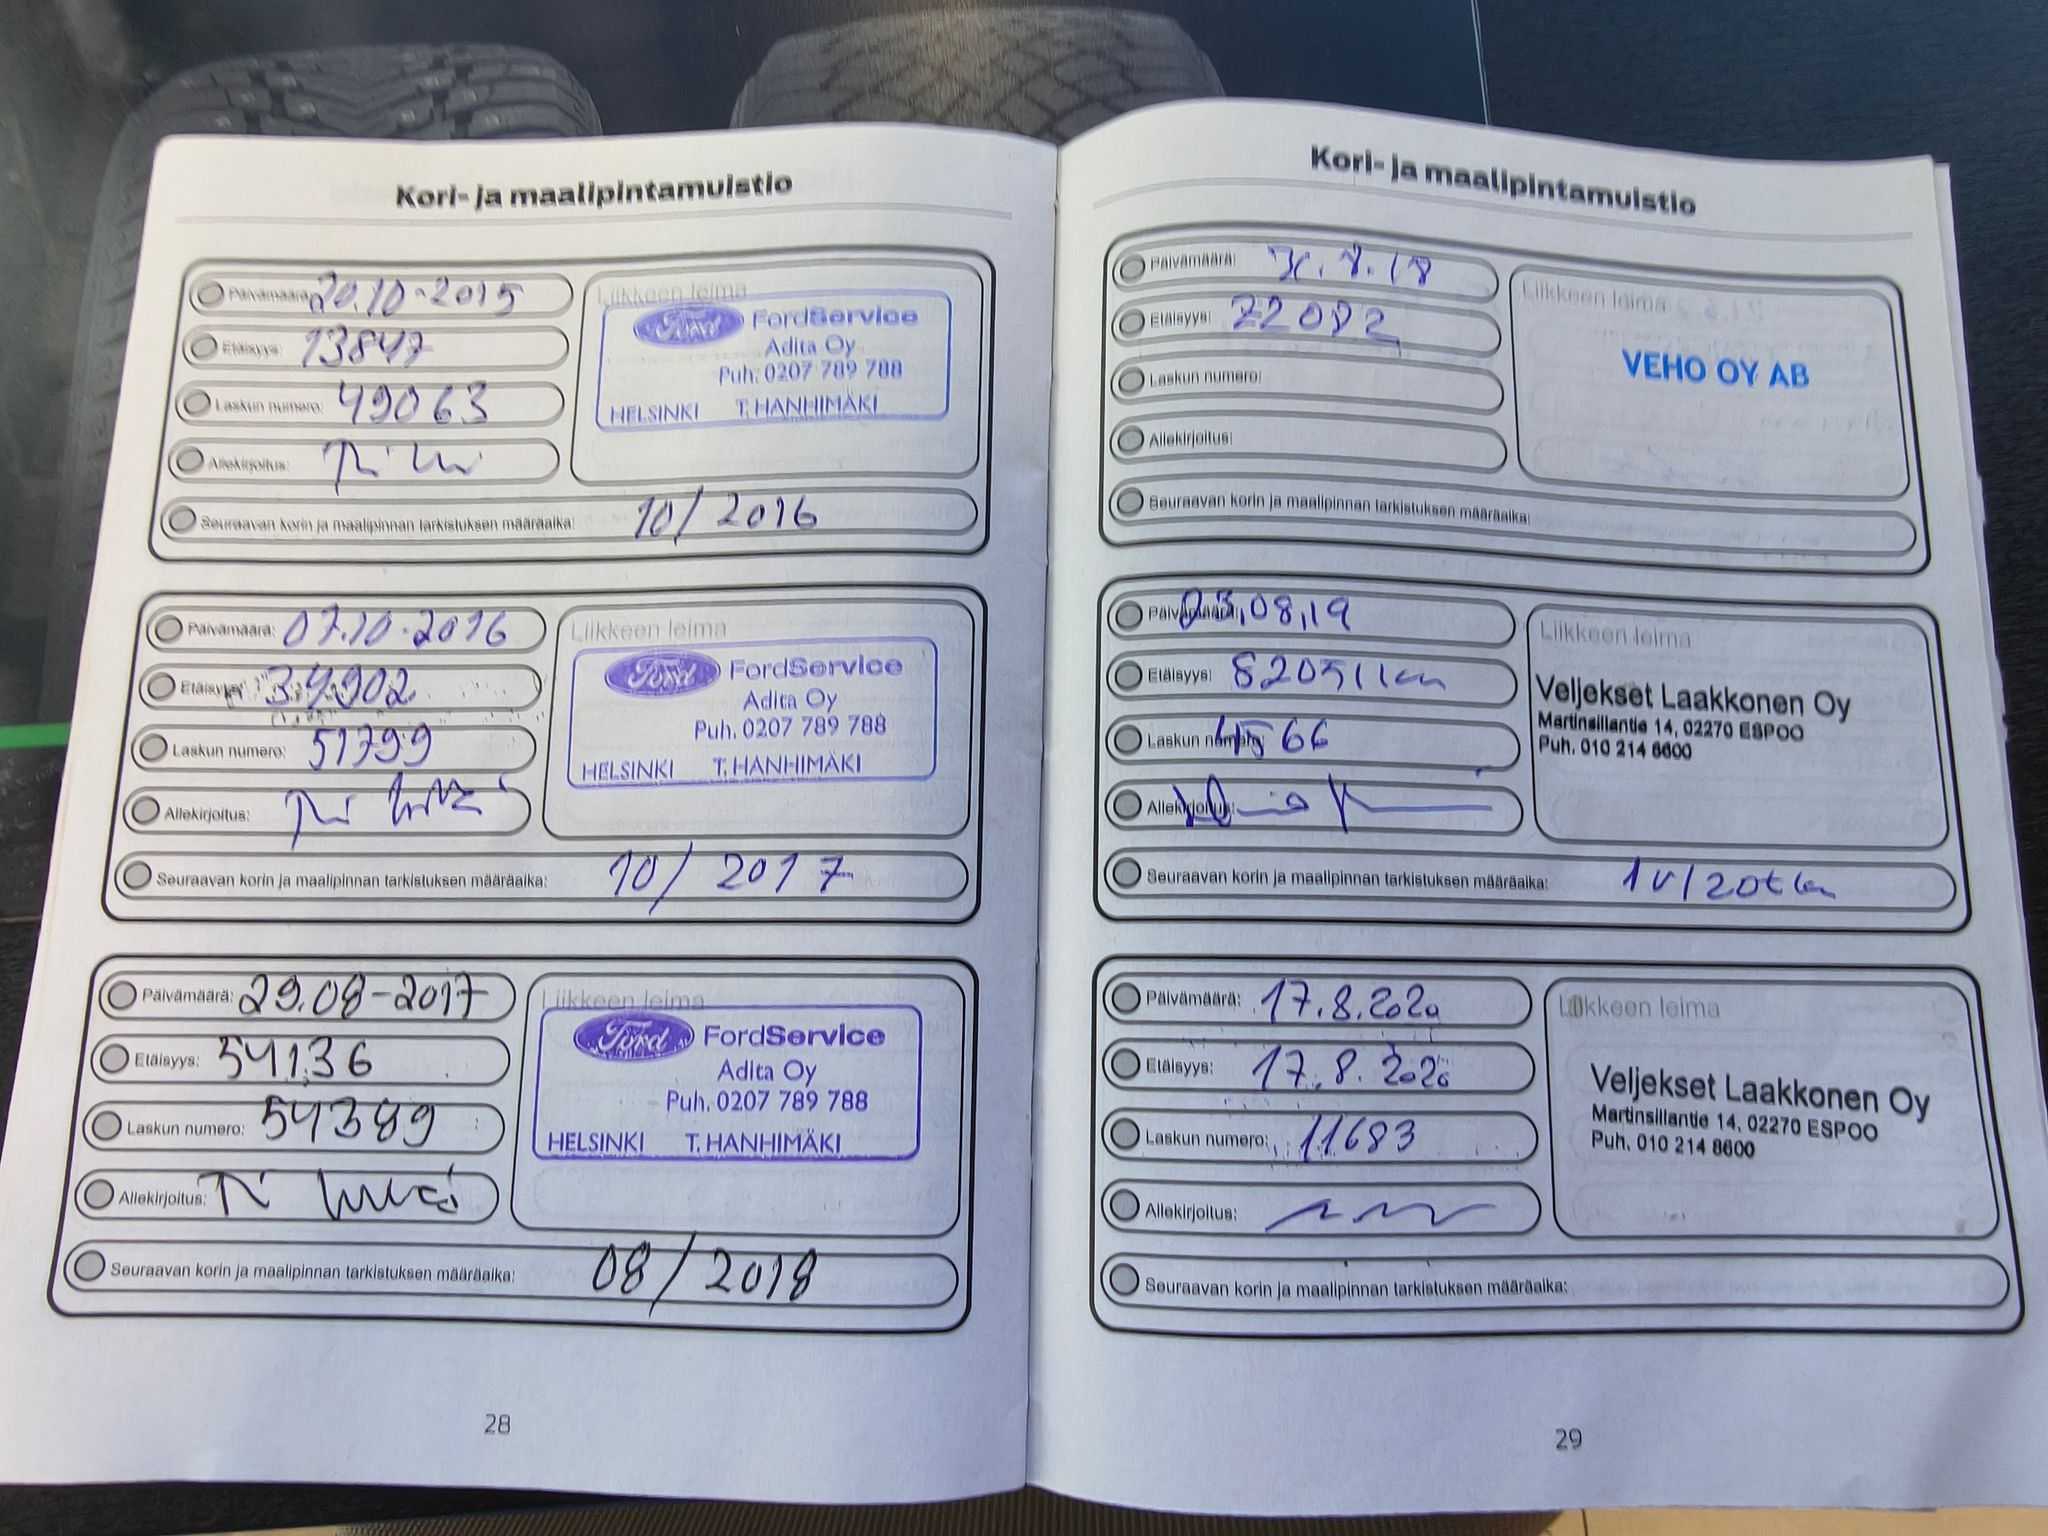 Kori- ja maalipintamuistio
Päivämäärä: 20.10-2015
Etäisyys: 13847
Laskun numero: 49063
Allekirjoitus:
Liikkeen leima
Ford FordService
Adita Oy
Puh. 0207 789 788
HELSINKI T. HANHIMÄKI
Seuraavan korin ja maalipinnan tarkistuksen määräaika: 10/2016
Päivämäärä: 07.10-2016
Etäisyys: 34902
Laskun numero: 51799
Allekirjoitus:
Liikkeen leima
Ford FordService
Adita Oy
Puh. 0207 789 788
HELSINKI T. HANHIMÄKI
Seuraavan korin ja maalipinnan tarkistuksen määräaika: 10/2017
Päivämäärä: 29.08-2017
Etäisyys: 54136
Laskun numero: 54389
Allekirjoitus:
Liikkeen leima
Ford FordService
Adita Oy
Puh. 0207 789 788
HELSINKI T. HANHIMÄKI
Seuraavan korin ja maalipinnan tarkistuksen määräaika: 08/2018
28
Kori- ja maalipintamuistio
Päivämäärä:
Etäisyys: 72082
Laskun numero:
Allekirjoitus:
Liikkeen leima
VEHO OY AB
Seuraavan korin ja maalipinnan tarkistuksen määräaika:
Päivämäärä: 23,08,19
Etäisyys: 82051 km
Laskun numero: 4566
Allekirjoitus:
Liikkeen leima
Veljekset Laakkonen Oy
Martinsillantie 14, 02270 ESPOO
Puh. 010 214 8600
Seuraavan korin ja maalipinnan tarkistuksen määräaika: 1v/20tkm
Päivämäärä: 17.8.2020
Etäisyys: 17.8.2020
Laskun numero: 11683
Allekirjoitus:
Liikkeen leima
Veljekset Laakkonen Oy
Martinsillantie 14, 02270 ESPOO
Puh. 010 214 8600
Seuraavan korin ja maalipinnan tarkistuksen määräaika:
29